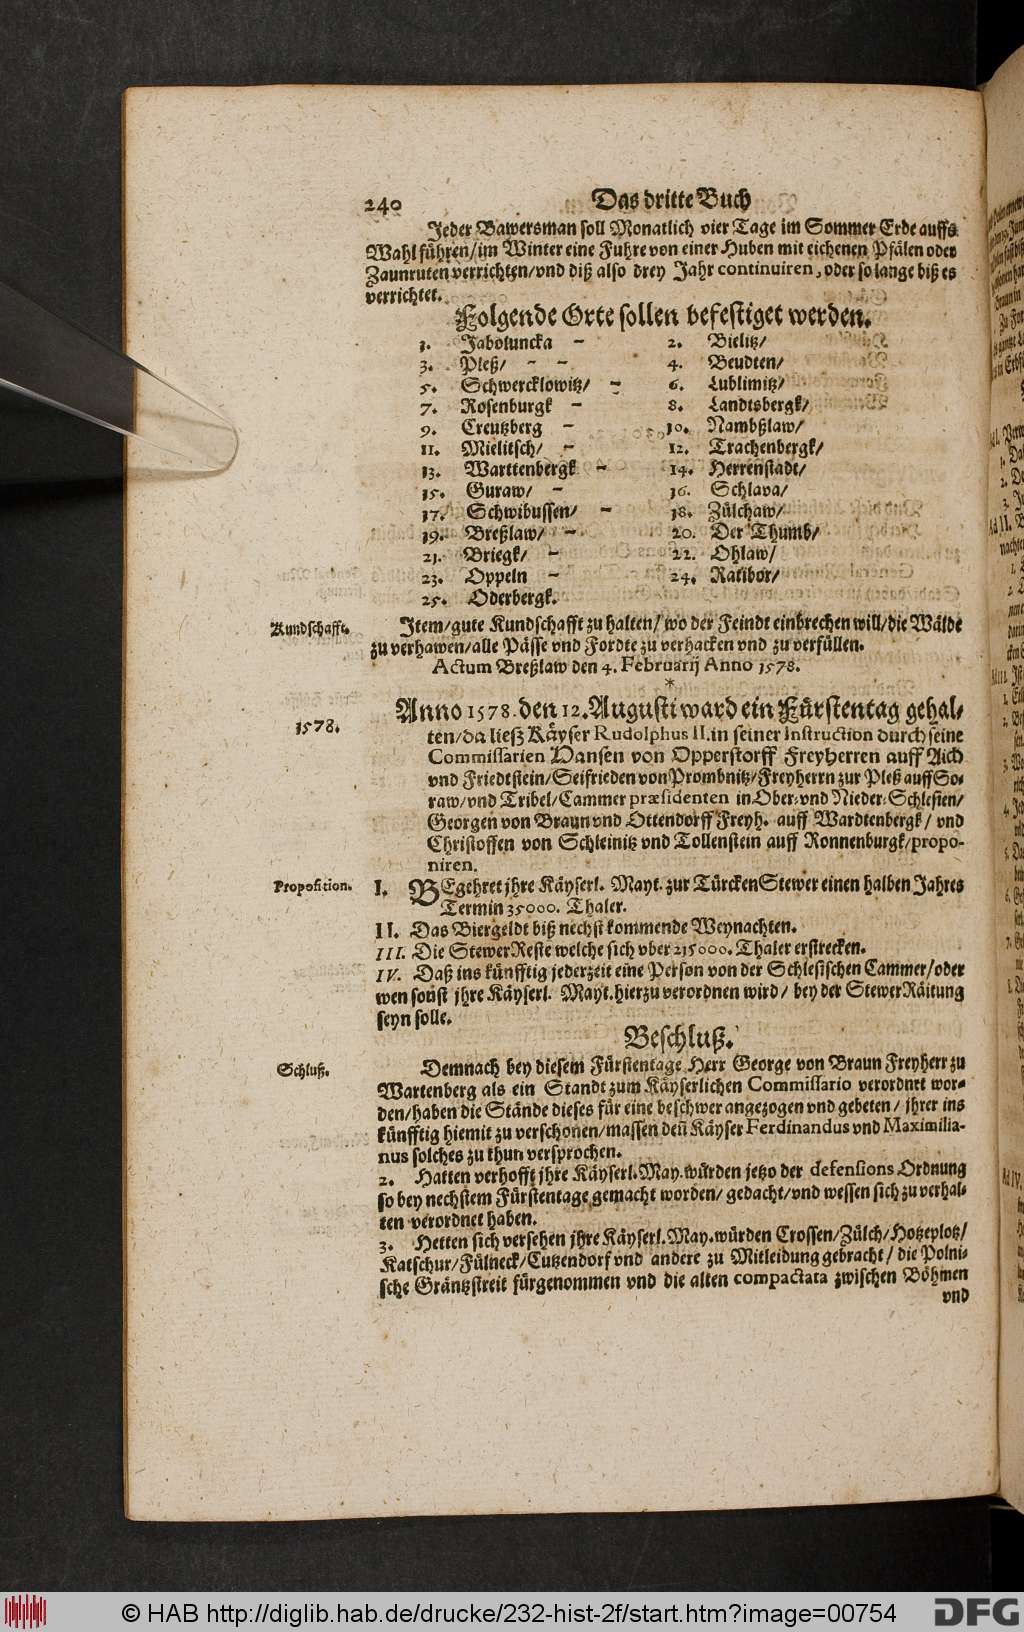 240 Das dritte Buch
Jeder Bawersman soll Monatlich vier Tage im Sommer Erde auffs
Wahl führen/im Winter eine Fuhre von einer Huben mit eichenen Pfälen oder
Zaunruten verrichten/vnd diß also drey Jahr continuiren, oder so lange biß es
verrichtet.
Folgende Orte sollen befestiget werden.
1. Jaboluncka - 2. Bielitz/
3. Pleß/ - - 4. Beudten/
5. Schwercklowitz/ - 6. Lublimitz/
7. Rosenburgk - 8. Landtsbergk/
9. Creutzberg - 10. Nambßlaw/
11. Mielitsch/ - 12. Trachenbergk/
13. Warttenbergk - 14. Herrenstadt/
15. Guraw/ - 16. Schlava/
17. Schwibussen/ - 18. Zülchaw/
19. Breßlaw/ - 20. Der Thumb/
21. Briegk/ - 22. Ohlaw/
23. Oppeln - 24. Ratibor/
25. Oderbergk.
Kundschafft. Item/gute Kundschafft zu halten/wo der Feindt einbrechen will/die Wälde
zu verhawen/alle Pässe vnd Fordte zu verhacken vnd zu verfüllen.
Actum Breßlaw den 4. Februarij Anno 1578.
*
1578. Anno 1578. den 12. Augusti ward ein Fürstentag gehal-
ten/da ließ Käyser Rudolphus II. in seiner Instruction durch seine
Commissarien Hansen von Opperstorff Freyherren auff Aich
vnd Friedtstein/Seifrieden von Prombnitz/Freyherrn zur Pleß auff So-
raw/vnd Tribel/Cammer præsidenten in Ober-vnd Nieder-Schlesien/
Georgen von Braun vnd Ottendorff Freyh. auff Wardtenbergk/ vnd
Christoffen von Schleinitz vnd Tollenstein auff Ronnenburgk/propo-
niren.
Proposition. I. BEgehret jhre Käyserl. Mayt. zur TürckenStewer einen halben Jahres
Termin 35000. Thaler.
II. Das Biergeldt biß nechst kommende Weynachten.
III. Die StewerReste welche sich vber 215000. Thaler erstrecken.
IV. Daß ins künfftig jederzeit eine Person von der Schlesischen Cammer/oder
wen sonst jhre Käyserl. Mayt. hierzu verordnen wird/ bey der StewerRäitung
seyn solle.
Beschluß.
Schluß. Demnach bey diesem Fürstentage Herr George von Braun Freyherr zu
Wartenberg als ein Standt zum Käyserlichen Commissario verordnet wor-
den/haben die Stände dieses für eine beschwer angezogen vnd gebeten/ jhrer ins
künfftig hiemit zu verschonen/massen deñ Käyser Ferdinandus vnd Maximilia-
nus solches zu thun versprochen.
2. Hatten verhofft jhre Käyserl. May. würden jetzo der defensions Ordnung
so bey nechstem Fürstentage gemacht worden/ gedacht/vnd wessen sich zu verhal-
ten verordnet haben.
3. Hetten sich versehen jhre Käyserl. May. würden Crossen/Zülch/Hotzeplotz/
Katschur/Fülneck/Cutzendorf vnd andere zu Mitleidung gebracht/ die Polni-
sche Gräntzstreit fürgenommen vnd die alten compactata zwischen Böhmen
vnd
© HAB http://diglib.hab.de/drucke/232-hist-2f/start.htm?image=00754
DFG